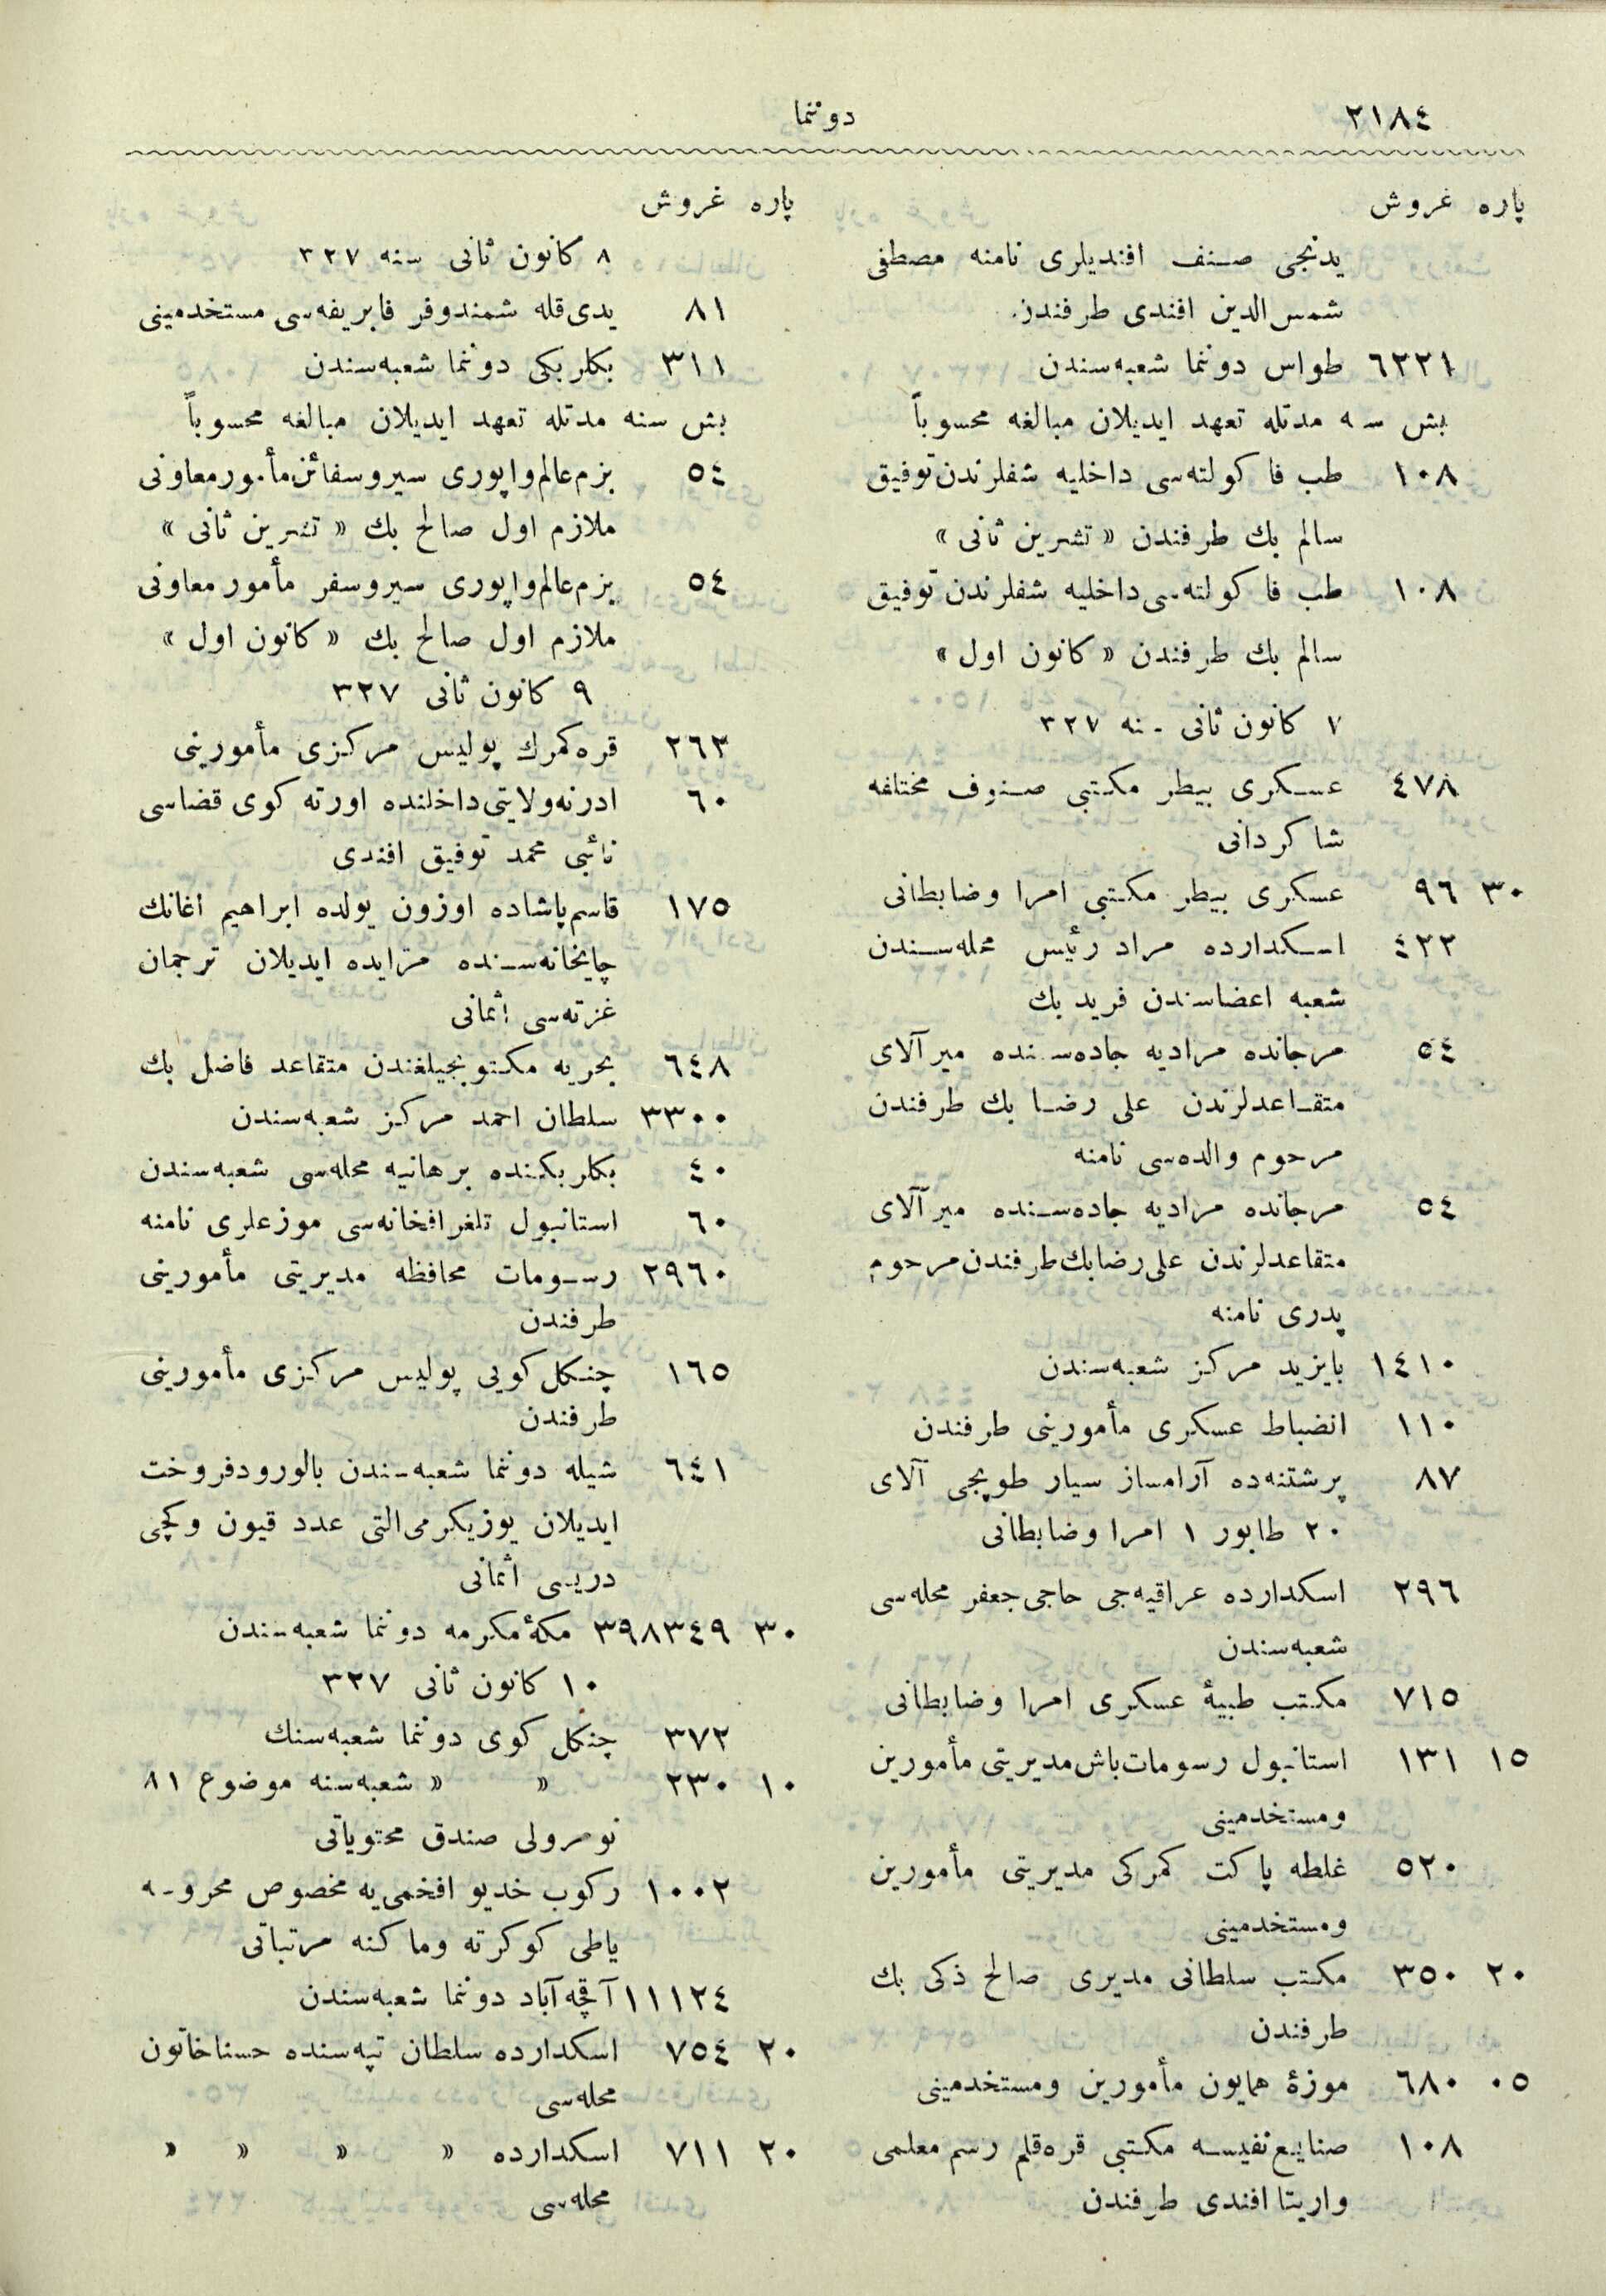 ٢١٨٤
دوننما
پاره غروش
يدنجى صنف افنديلرى نامنه مصطفى
شمس الدين افندى طرفندن.
٦٢٢١ طواس دوننما شعبه‌سندن
بش سنه مدتله تعهد ايديلان مبالغه محسوباً
١٠٨ طب فاكولته‌سى داخليه شفلرندن توفيق
سالم بك طرفندن « تشرين ثانى »
١٠٨ طب فاكولته‌سى داخليه شفلرندن توفيق
سالم بك طرفندن « كانون اول »
٧ كانون ثانى سنه ٣٢٧
٤٧٨ عسكرى بيطر مكتبى صنوف مختلفه
شاكردانى
٣٠ ٩٦ عسكرى بيطر مكتبى امرا وضابطانى
٤٢٢ اسكدارده مراد رئيس محله‌سندن
شعبه اعضاسندن فريد بك
٥٤ مرجانده مراديه جاده‌سنده ميرآلاى
متقاعدلرندن على رضا بك طرفندن
مرحوم والده‌سى نامنه
٥٤ مرجانده مراديه جاده‌سنده ميرآلاى
متقاعدلرندن على رضا بك طرفندن مرحوم
پدرى نامنه
١٤١٠ بايزيد مركز شعبه‌سندن
١١٠ انضباط عسكرى مأمورينى طرفندن
٨٧ پرشتنه‌ده آرامساز سيار طوپجى آلاى
٢٠ طابور ١ امرا وضابطانى
٢٩٦ اسكدارده عراقيه‌جى حاجى جعفر محله‌سى
شعبه‌سندن
٧١٥ مكتب طبيهٔ عسكرى امرا وضابطانى
١٥ ١٣١ استانبول رسومات باش مديريتى مأمورين
ومستخدمينى
٥٢٠ غلطه پاكت كمركى مديريتى مأمورين
ومستخدمينى
٢٠ ٣٥٠ مكتب سلطانى مديرى صالح ذكى بك
طرفندن
٠٥ ٦٨٠ موزهٔ همايون مأمورين ومستخدمينى
١٠٨ صنايع نفيسه مكتبى قره‌قلم رسم معلمى
واريتا افندى طرفندن
پاره غروش
٨ كانون ثانى سنه ٣٢٧
٨١ يدى قله شمندوفر فابريقه‌سى مستخدمينى
٣١١ بكلربكى دوننما شعبه‌سندن
بش سنه مدتله تعهد ايديلان مبالغه محسوباً
٥٤ بزم‌عالم واپورى سيروسفائن مأمور معاونى
ملازم اول صالح بك « تشرين ثانى »
٥٤ بزم‌عالم واپورى سيروسفر مأمور معاونى
ملازم اول صالح بك « كانون اول »
٩ كانون ثانى ٣٢٧
٢٦٣ قره‌كمرك پوليس مركزى مأمورينى
٦٠ ادرنه ولايتى داخلنده اورته كوى قضاسى
نائبى محمد توفيق افندى
١٧٥ قاسم پاشاده اوزون يولده ابراهيم اغانك
چايخانه‌سنده مزايده ايديلان ترجمان
غزته‌سى اثمانى
٦٤٨ بحريه مكتوبجيلغندن متقاعد فاضل بك
٣٣٠٠ سلطان احمد مركز شعبه‌سندن
٤٠ بكلربكنده برهانيه محله‌سى شعبه‌سندن
٦٠ استانبول تلغرافخانه‌سى موزعلرى نامنه
٢٩٦٠ رسومات محافظه مديريتى مأمورينى
طرفندن
١٦٥ چنكل كويى پوليس مركزى مأمورينى
طرفندن
٦٤١ شيله دوننما شعبه‌سندن بالورود فروخت
ايديلان يوزيكرمى‌التى عدد قيون وكچى
دريسى اثمانى
٣٠ ٣٩٨٣٤٩ مكهٔ مكرمه دوننما شعبه‌سندن
١٠ كانون ثانى ٣٢٧
٣٧٢ چنكل كوى دوننما شعبه‌سنك
١٠ ٢٣٠ « « شعبه‌سنه موضوع ٨١
نومرولى صندق محتوياتى
١٠٠٢ ركوب خديو افخمى‌يه مخصوص محروسه
ياطى كوكرته وماكنه مرتباتى
١١١٢٤ آقچه‌آباد دوننما شعبه‌سندن
٢٠ ٧٥٤ اسكدارده سلطان تپه‌سنده حسنا خاتون
محله‌سى
٢٠ ٧١١ اسكدارده « « « «
محله‌سى